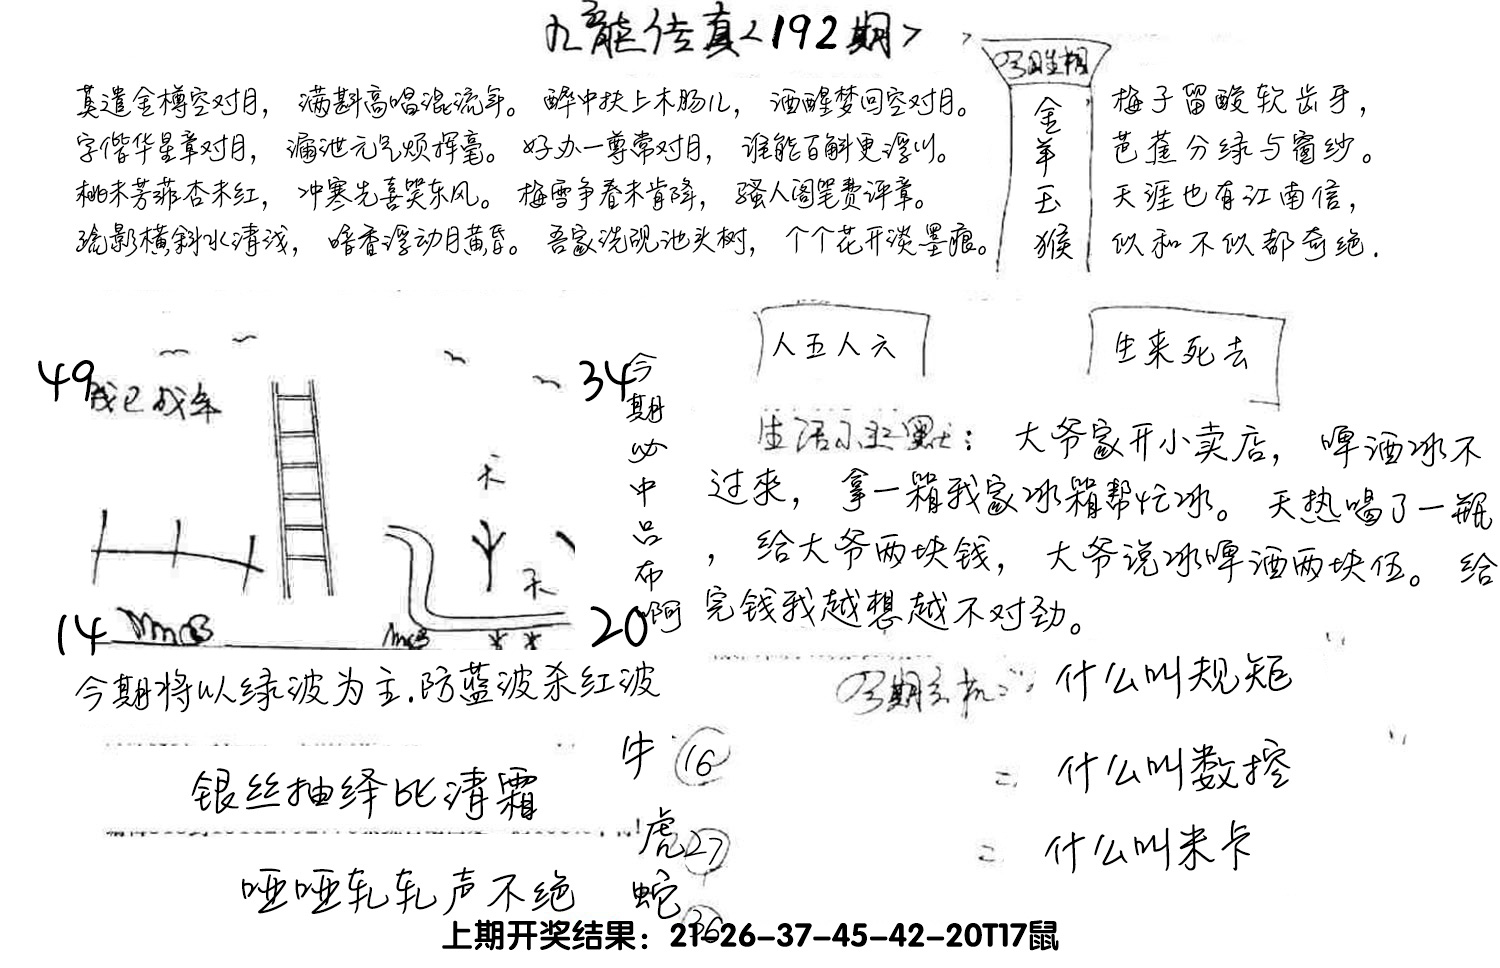 九龍传真<192期>
莫遣金樽空对月，满斟高唱混流年。醉中扶上木肠儿，酒醒梦回空对月。
字偕华星章对月，漏泄元气烦挥毫。好办一尊常对月，谁能百斛更浮川。
桃未芳菲杏未红，冲寒先喜笑东风。梅雪争春未肯降，骚人阁笔费评章。
疏影横斜水清浅，暗香浮动月黄昏。吾家洗砚池头树，个个花开淡墨痕。
今日生相
金
羊
玉
猴
梅子留酸软齿牙，
芭蕉分绿与窗纱。
天涯也有江南信，
似和不似都奇绝.
49
34
我已成年
天
天
14
20
今
期
必
中
吕
布
啊
今期将以绿波为主.防蓝波杀红波
人五人六
生来死去
生活小幽默：大爷家开小卖店，啤酒冰不
过来，拿一箱我家冰箱帮忙冰。天热喝了一瓶
，给大爷两块钱，大爷说冰啤酒两块伍。给
完钱我越想越不对劲。
今期玄机二：什么叫规矩
什么叫数控
什么叫米卡
牛 16
虎 27
蛇 36
银丝抽绎比清霜
哑哑轧轧声不绝
上期开奖结果：21-26-37-45-42-20T17鼠